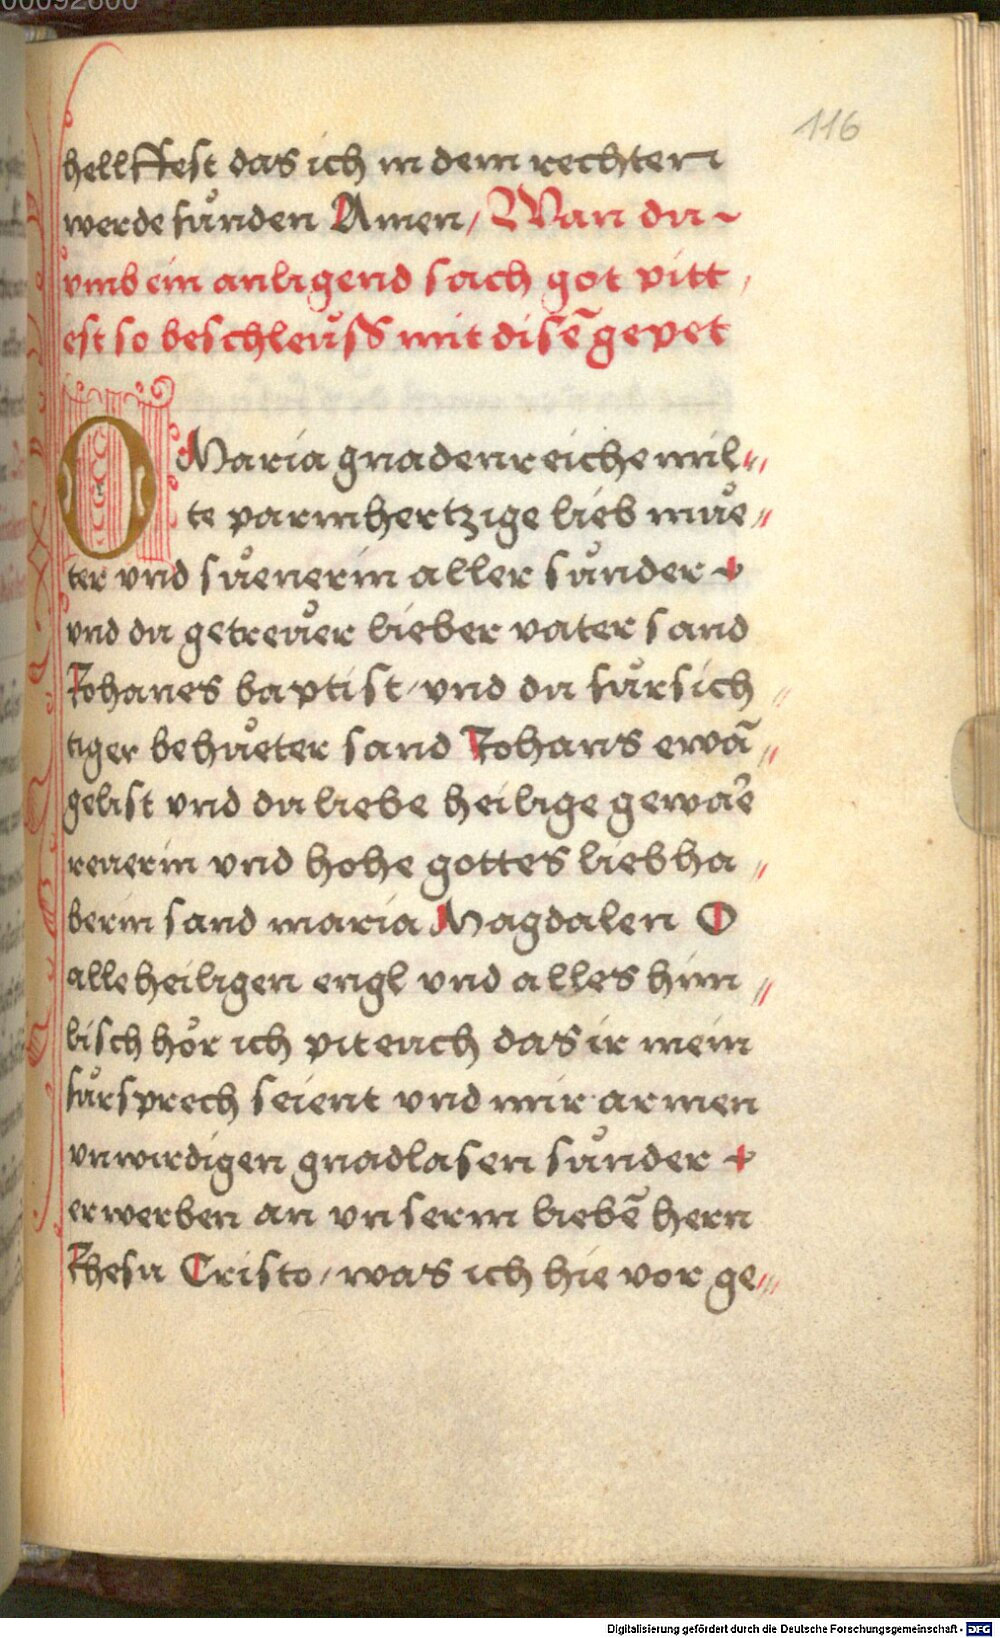 00092600
116
hellffest das ich in dem rechten
werde fůnden Amen / Wan du
vmb ein anligend sach got pitt
est so beschleůss mit disē gepet
O Maria gnadenreiche mil
te parmhertzige lieb můe
ter vnd sůenerin aller sůnder
vnd du getreůer lieber vater sand
Johanes baptist / vnd du fůrsich
tiger behůeter sand Johans ewā
gelist vnd du liebe heilige gewaͤe
reuerin vnd hohe gottes liebha
berin sand maria Magdalen O
alle heiligen engl vnd alles him
lisch hoͤr ich pit euch das ir mein
fůrsprech seient vnd mir armen
vnwirdigen gnadlasen sůnder
erwerben an vnserm liebē hern
Jhesu Cristo / was ich hie vor ge
Digitalisierung gefördert durch die Deutsche Forschungsgemeinschaft - DFG